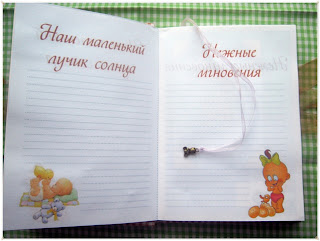 Наш маленький
лучик солнца
Нежные
мгновения